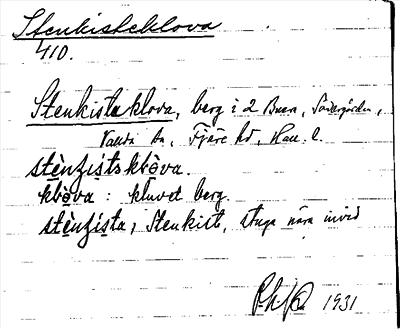 Stenkisteklova
410.
Stenkisteklova, berg i 2 Buen, Södergården,
Valda sn, Fjäre hd, Hall. l.
stènzístsklòva.
klòva : kluvet berg.
stènzísta, Stenkista, stuga nära invid
1931